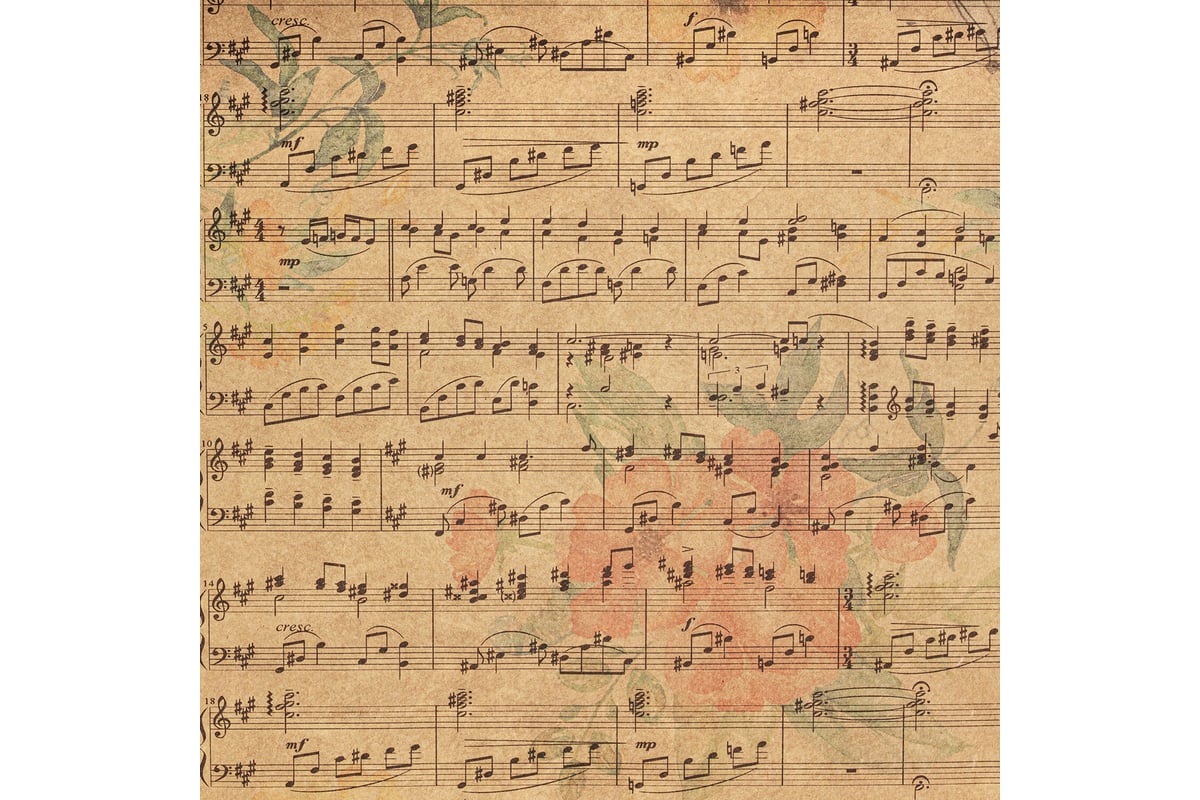 cresc. f
3
4
18
mf mp
4
4
mp
4
4
5
3
10
mf
14
3
4
cresc. f
3
4
18
mf mp